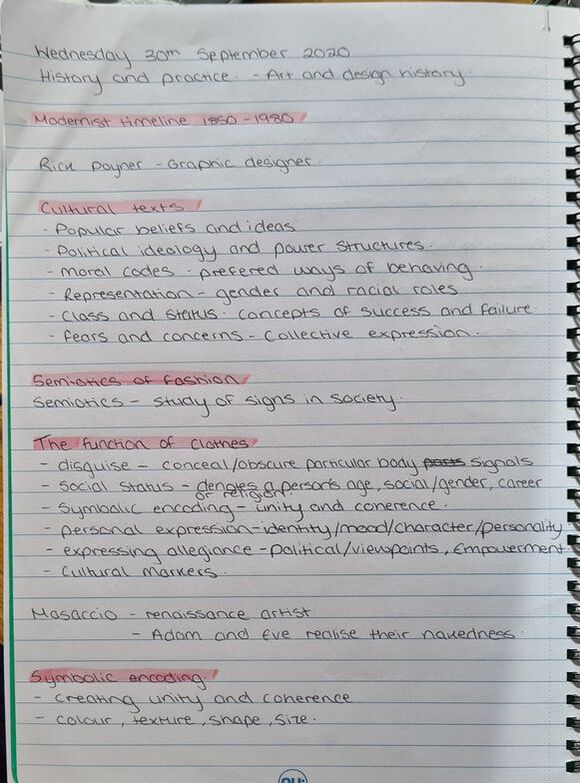 Wednesday 30th September 2020
History and practice. - Art and design history.
Modernist timeline 1850-1980
Rick Poyner - Graphic designer.
Cultural texts
- Popular beliefs and ideas
- Political ideology and power structures.
- Moral codes - prefered ways of behaving.
- Representation - gender and racial roles
- Class and status - concepts of success and failure.
- Fears and concerns - Collective expression.
Semiotics of fashion
Semiotics - study of signs in society.
The function of clothes
- disguise - conceal/obscure particular body parts signals
- Social status - denotes a person's age, social/gender, career
or religion.
- Symbolic encoding - unity and coherence.
- personal expression - identity/mood/character/personality
- expressing allegiance - political/viewpoints, Empowerment.
- Cultural markers.
Masaccio - renaissance artist
- Adam and Eve realise their nakedness.
Symbolic encoding.
- creating unity and coherence
- colour, texture, shape, size.